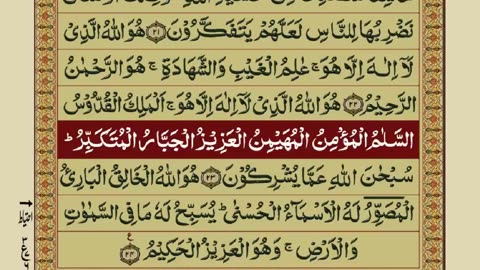 نَضْرِبُهَا لِلنَّاسِ لَعَلَّهُمْ يَتَفَكَّرُوْنَ ﴿۲۱﴾ هُوَ اللّٰهُ الَّذِيْ
لَاۤ اِلٰهَ اِلَّا هُوَ ۚ عٰلِمُ الْغَيْبِ وَالشَّهَادَةِ ۚ هُوَ الرَّحْمٰنُ
الرَّحِيْمُ ﴿۲۲﴾ هُوَ اللّٰهُ الَّذِيْ لَاۤ اِلٰهَ اِلَّا هُوَ ۚ اَلْمَلِكُ الْقُدُّوْسُ
السَّلٰمُ الْمُؤْمِنُ الْمُهَيْمِنُ الْعَزِيْزُ الْجَبَّارُ الْمُتَكَبِّرُ ؕ
سُبْحٰنَ اللّٰهِ عَمَّا يُشْرِكُوْنَ ﴿۲۳﴾ هُوَ اللّٰهُ الْخَالِقُ الْبَارِئُ
الْمُصَوِّرُ لَهُ الْاَسْمَآءُ الْحُسْنٰى ؕ يُسَبِّحُ لَهٗ مَا فِى السَّمٰوٰتِ
وَالْاَرْضِ ۚ وَهُوَ الْعَزِيْزُ الْحَكِيْمُ ﴿۲۴﴾
احتیاط